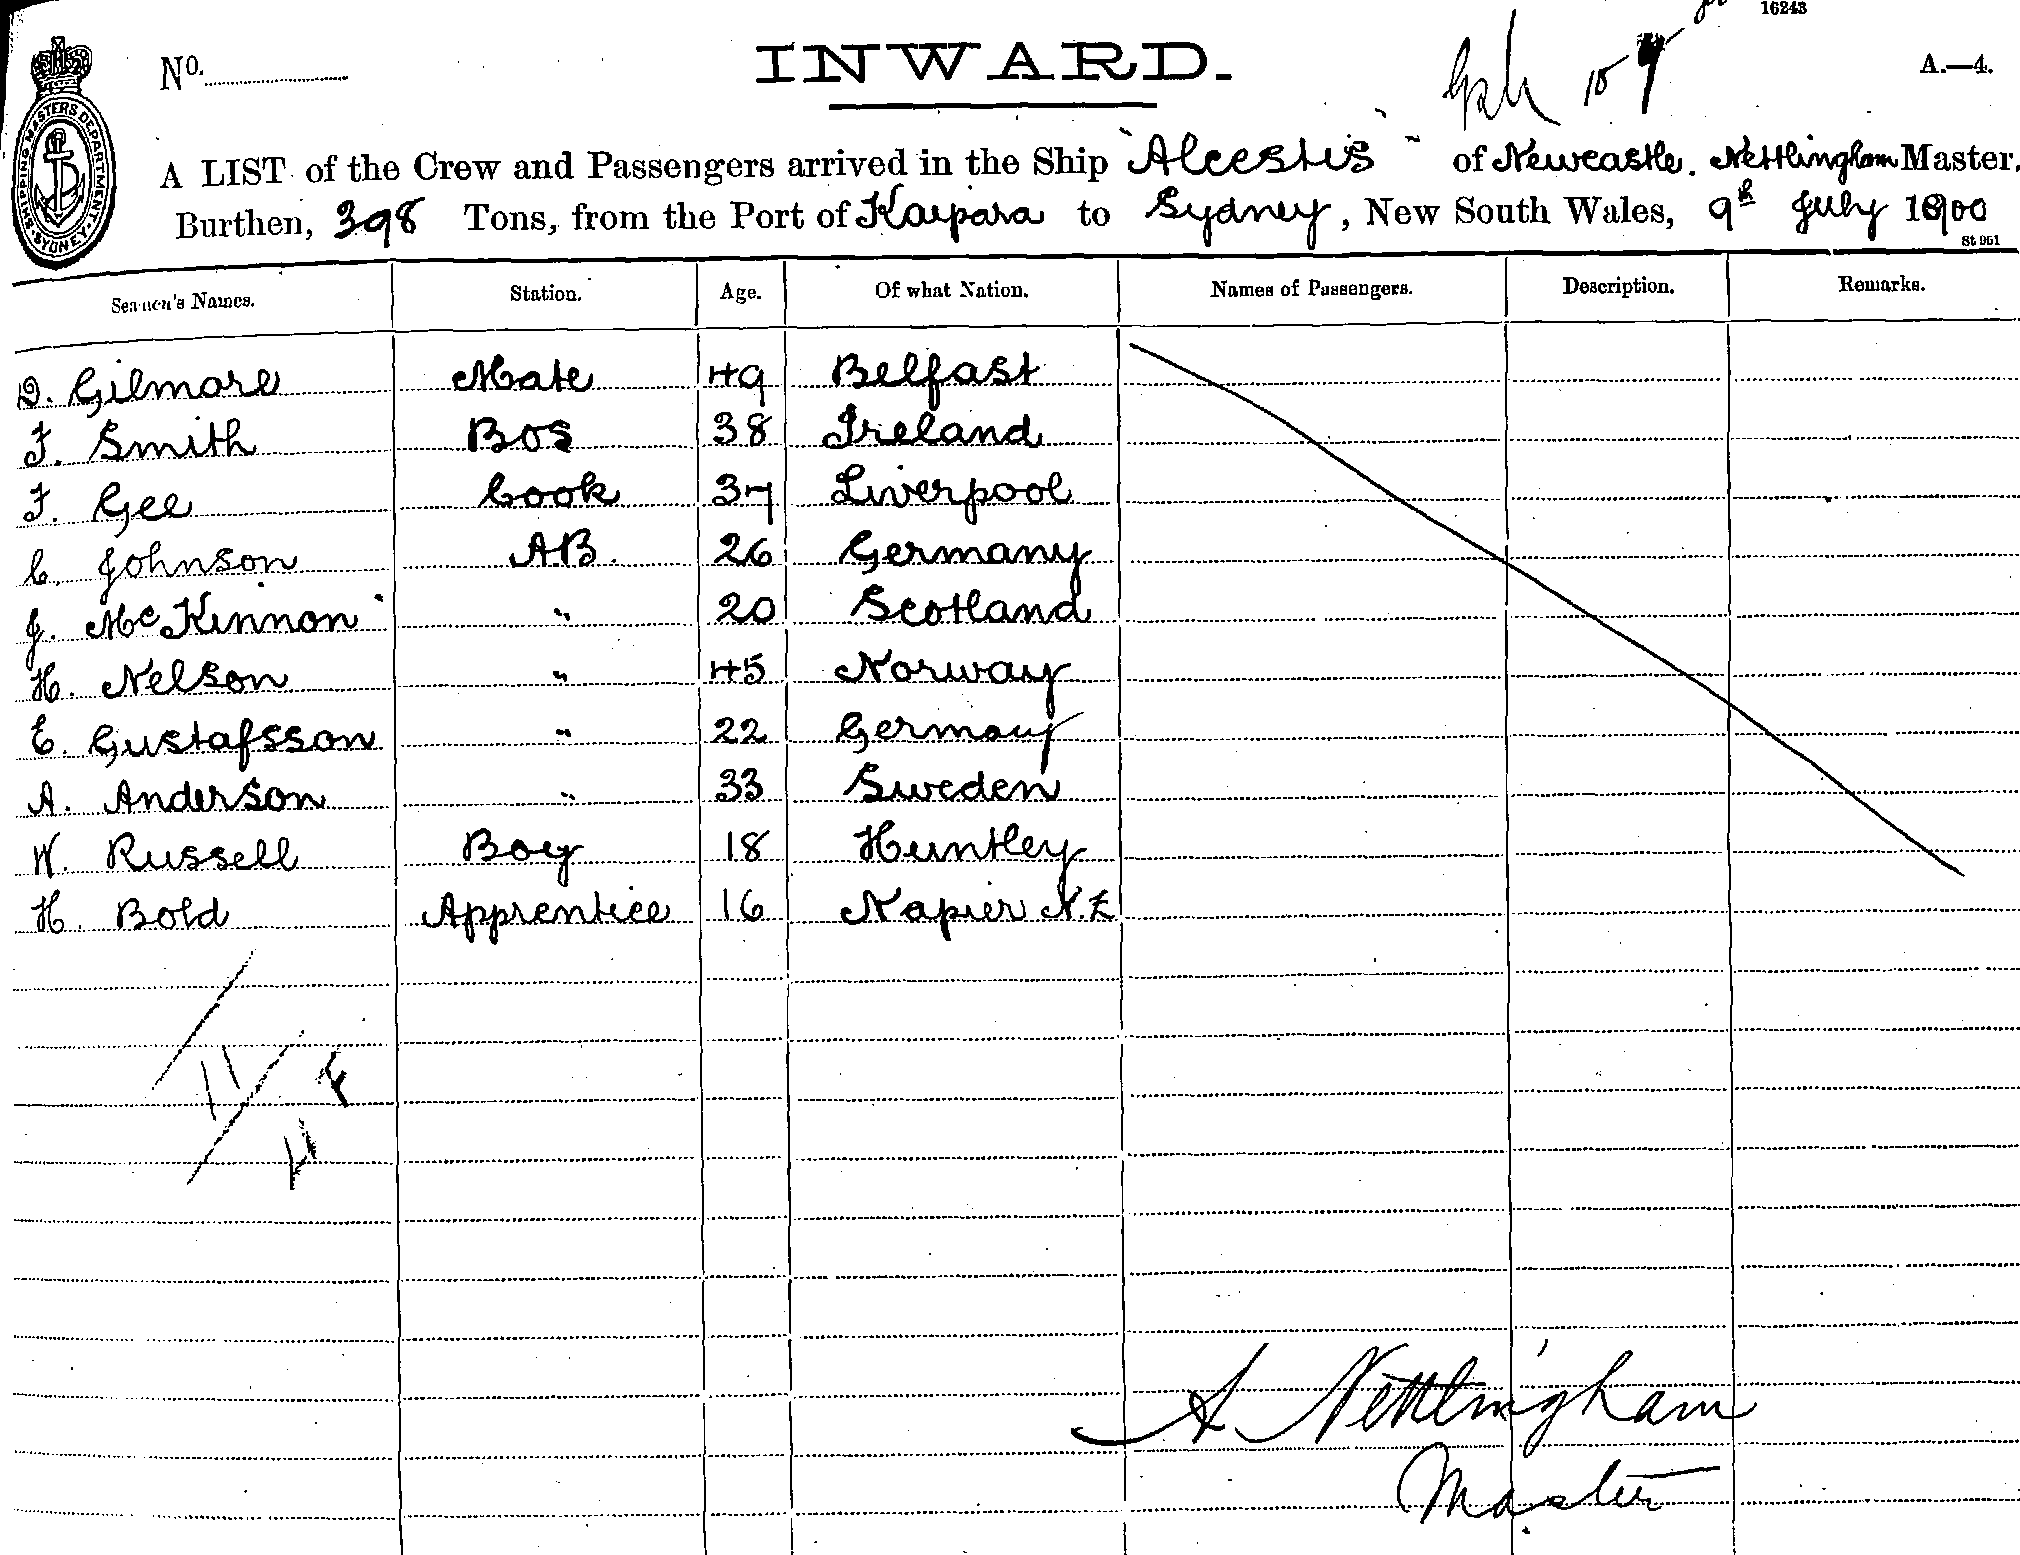 16243
No.
INWARD.
A.—4.
SHIPPING MASTERS DEPARTMENT SYDNEY
A LIST of the Crew and Passengers arrived in the Ship "Alcestis" of Newcastle. Nettlingham Master,
Burthen, 398 Tons, from the Port of Kaipara to Sydney, New South Wales, 9th July 1900
St 961
Seamen's Names. Station. Age. Of what Nation. Names of Passengers. Description. Remarks.
D. Gilmore Mate 49 Belfast
F. Smith Bos 38 Ireland
F. Gee Cook 37 Liverpool
C. Johnson AB. 26 Germany
J. McKinnon " 20 Scotland
H. Nelson " 45 Norway
E. Gustafsson " 22 Germany
A. Anderson " 33 Sweden
W. Russell Boy 18 Huntley
H. Bold Apprentice 16 Napier N.Z
11
A Nettlingham
Master